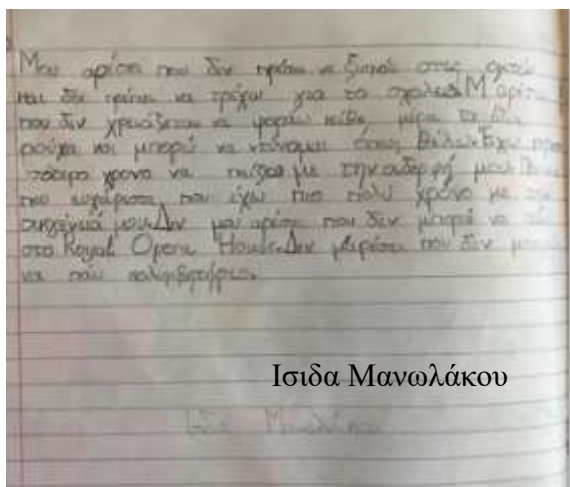 Μου αρέσει που δεν πρέπει να ξυπνάω στις οχτώ
και δεν πρέπει να τρέχω για το σχολείο. Μ αρέσει
που δεν χρειάζεται να φοράω κάθε μέρα τα ίδια
ρούχα και μπορώ να ντύνομαι όπως θέλω. Έχω
χρόνο να παίξω με την αδερφή μου.
πιο ευχάριστα που έχω πιο πολύ χρόνο με την
οικογένειά μου. Δεν μου αρέσει που δεν μπορώ να πάω
στο Royal Opera House. Δεν μ αρέσει που δεν μπορώ
να πάω κολυμβητήριο.
Ισιδα Μανωλάκου